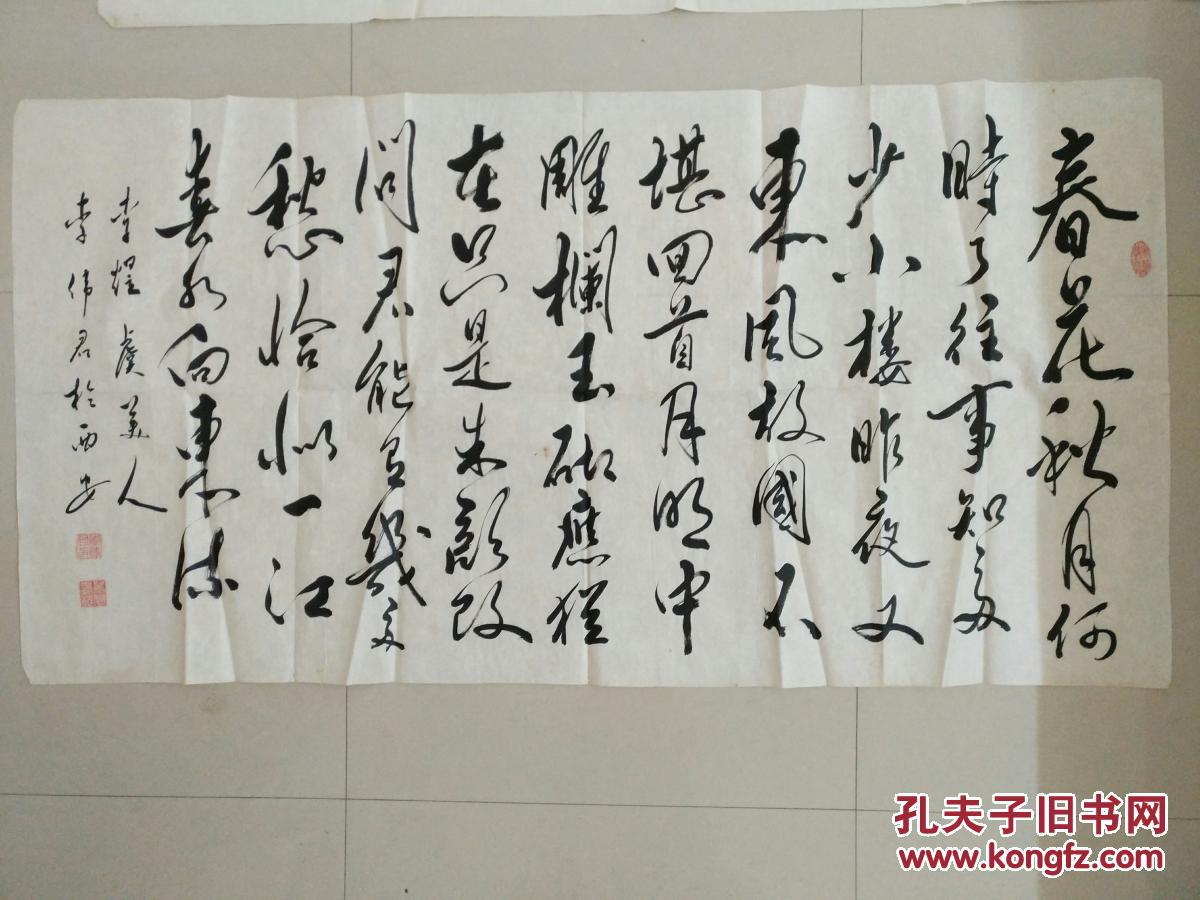 春花秋月何
時了往事知多
少小楼昨夜又
東風故國不
堪回首月明中
雕欄玉砌應猶
在只是朱顔改
問君能有幾多
愁恰似一江
春水向東流
李煜虞美人
李伟君於西安
孔夫子旧书网
www.kongfz.com